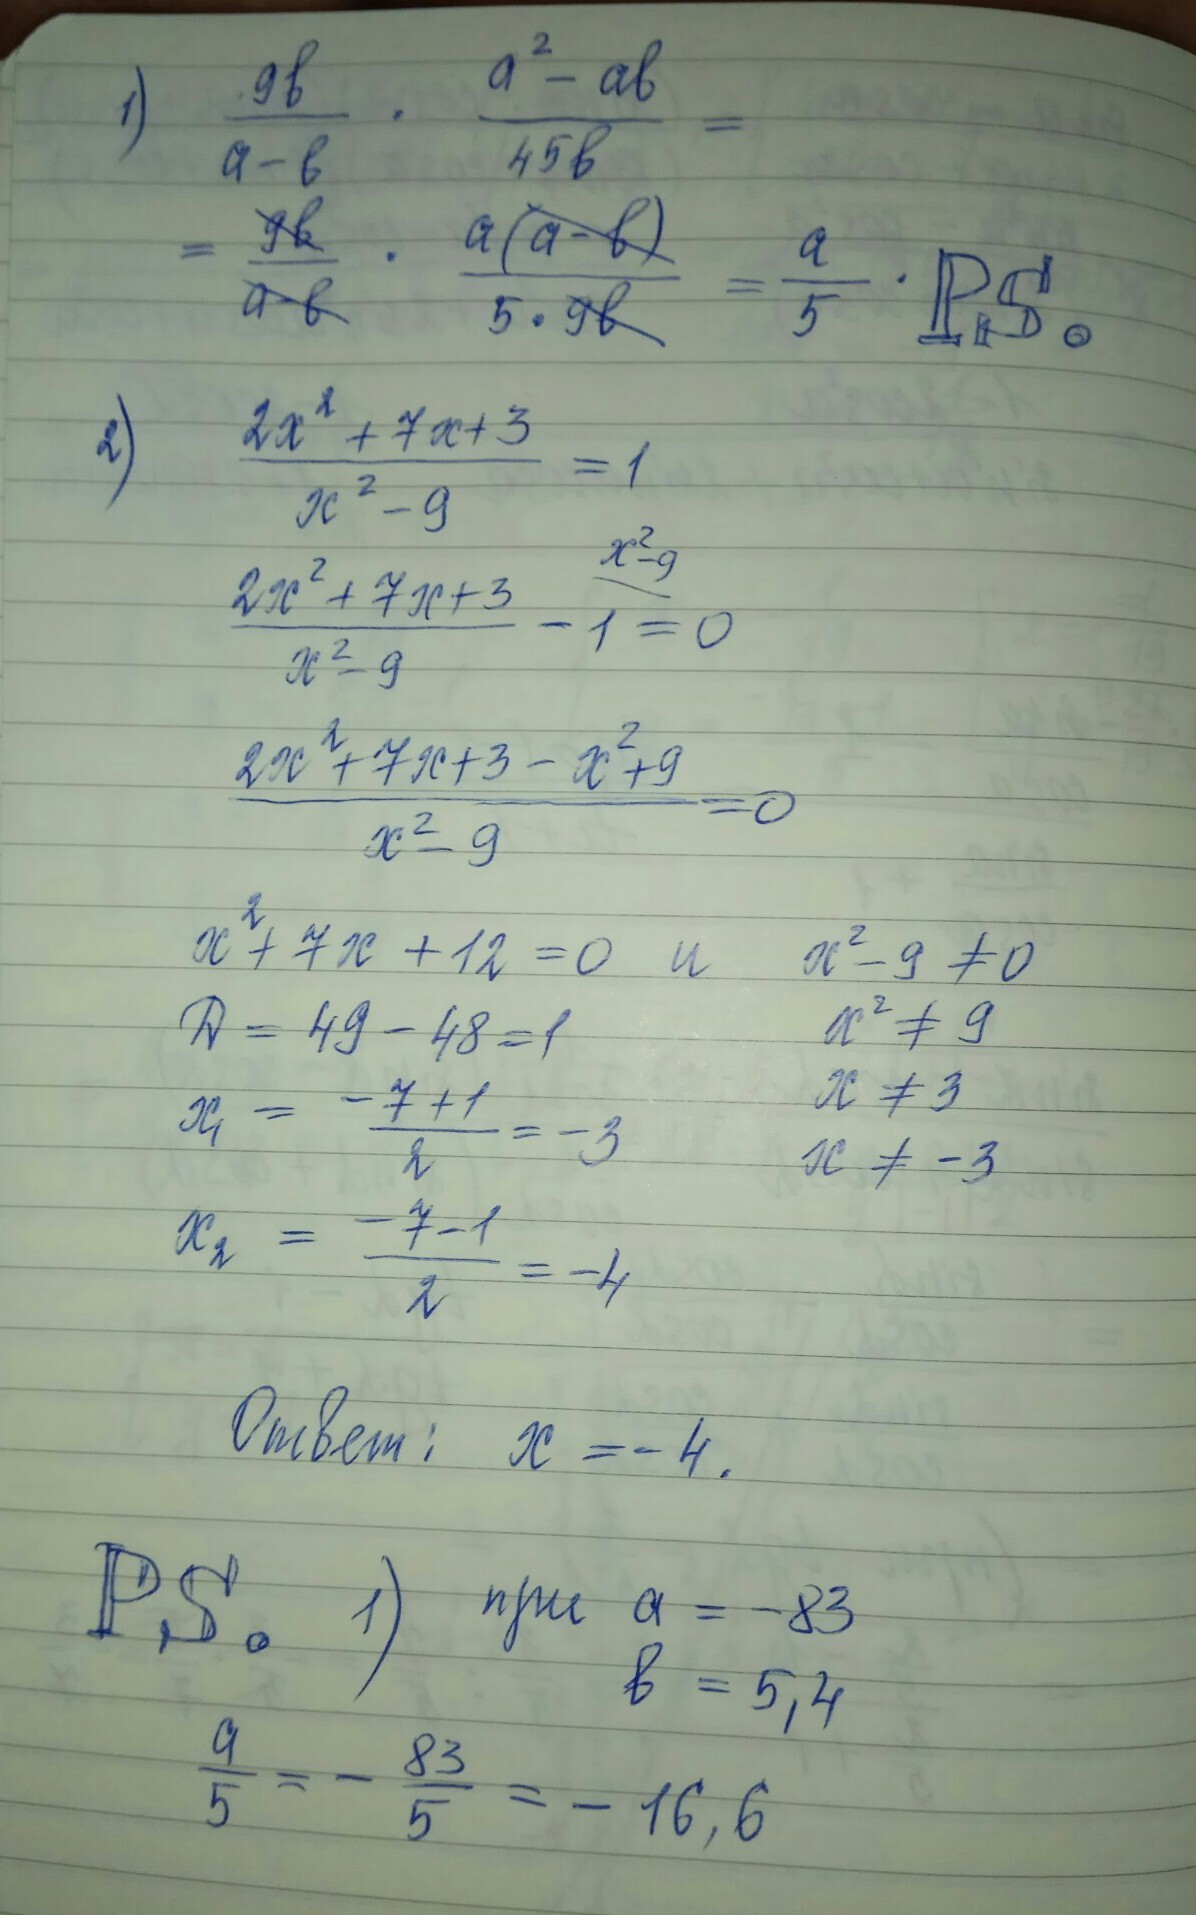 1) 9b/(a-b) · (a² - ab)/45b =
= 9b/(a-b) · a(a-b)/(5·9b) = a/5 · P.S.
2) (2x² + 7x + 3)/(x² - 9) = 1
x²-9
(2x² + 7x + 3)/(x² - 9) - 1 = 0
(2x² + 7x + 3 - x² + 9)/(x² - 9) = 0
x² + 7x + 12 = 0 и x² - 9 ≠ 0
D = 49 - 48 = 1 x² ≠ 9
x₁ = (-7+1)/2 = -3 x ≠ 3
x ≠ -3
x₂ = (-7-1)/2 = -4
Ответ: x = -4.
P.S. 1) при a = -83
b = 5,4
a/5 = - 83/5 = - 16,6